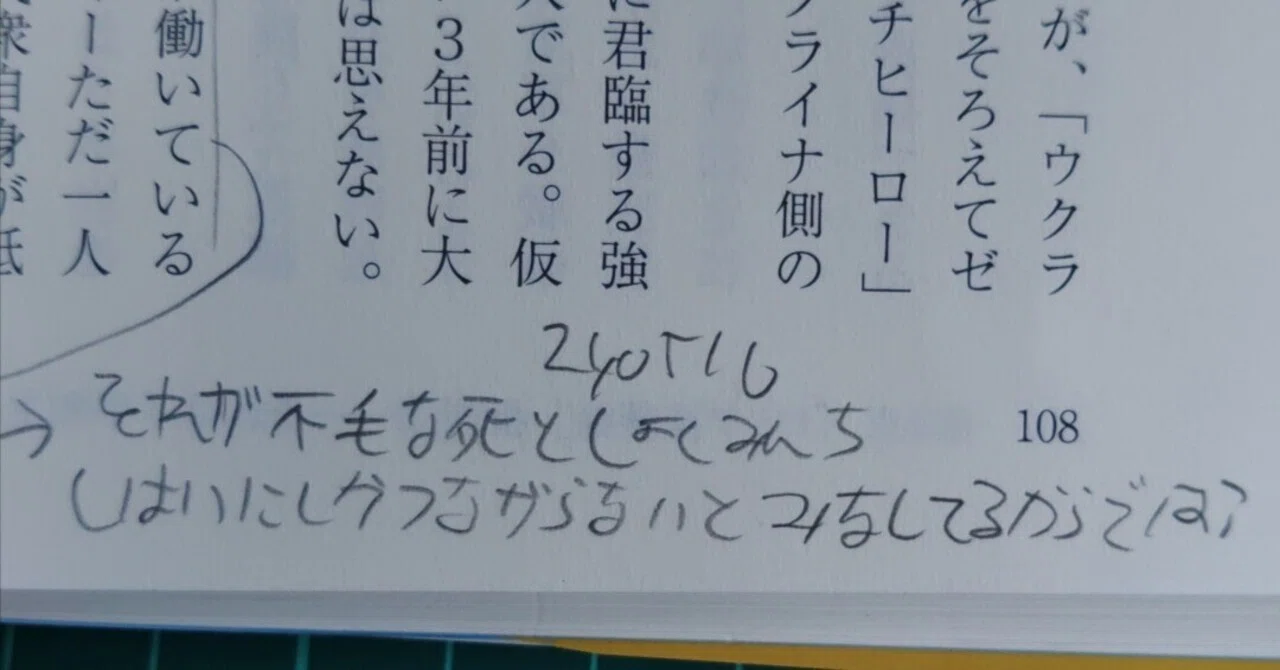 が、「ウクラ
をそろえてゼ
チヒーロー」
クライナ側の
に君臨する強
人である。仮
3年前に大
は思えない。
働いている
ーただ一人
衆自身が低
240516
→それが不毛な死としょくみんち
しはいにしかつながらないとみなしてるからでは?
108